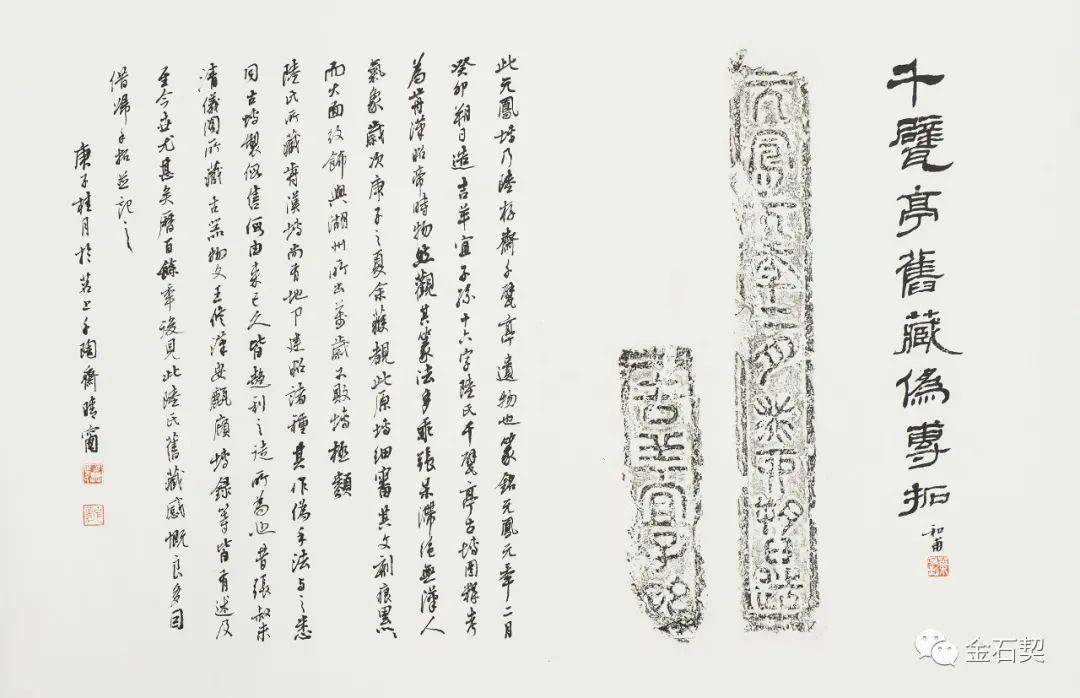 千甓亭舊藏偽專拓
和甫
元鳳元年二月癸卯朔日造
吉羊宜子孫
此元鳳塼乃陸存齋千甓亭遺物也篆銘元鳳元年二月
癸卯朔日造吉羊宜子孫十六字陸氏千甓亭古塼圖釋考
為前漢昭帝時物然觀其篆法多乖張呆滯絕無漢人
氣象歲次庚子之夏余獲覩此原塼細審其文刻痕累
而火面紋飾與湖州所出萬歲不敗塼極類
陸氏所藏前漢塼尚有地下建昭諸種其作偽手法與之悉
同古塼製偽售何由來已久皆趨利之徒所為也昔張叔未
清儀閣所藏古器物文王修漢安甎塼錄等皆有述及
至今世尤甚矣曆百餘年復見此陸氏舊藏感慨良多因
借歸手拓並記之
庚子桂月於苕上千陶齋晴窗
金石契